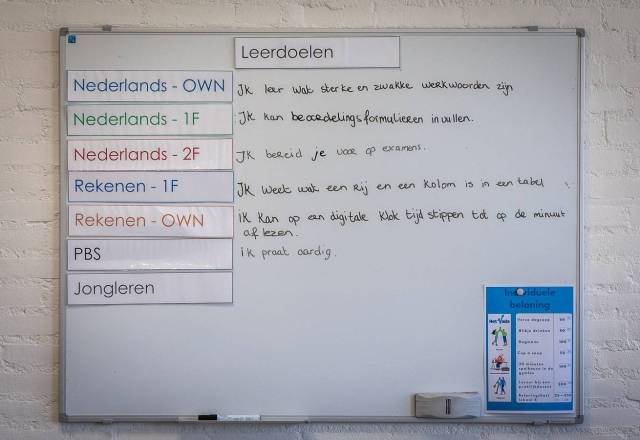 Leerdoelen
Nederlands - OWN Ik leer wat sterke en zwakke werkwoorden zijn
Nederlands - 1F Ik kan beoordelingsformulieren invullen.
Nederlands - 2F Ik bereid je voor op examens.
Rekenen - 1F Ik weet wat een rij en een kolom is in een tabel
Rekenen - OWN ik kan op een digitale klok tijdstippen tot op de minuut
aflezen.
PBS ik praat aardig.
Jongleren
Individuele
beloning